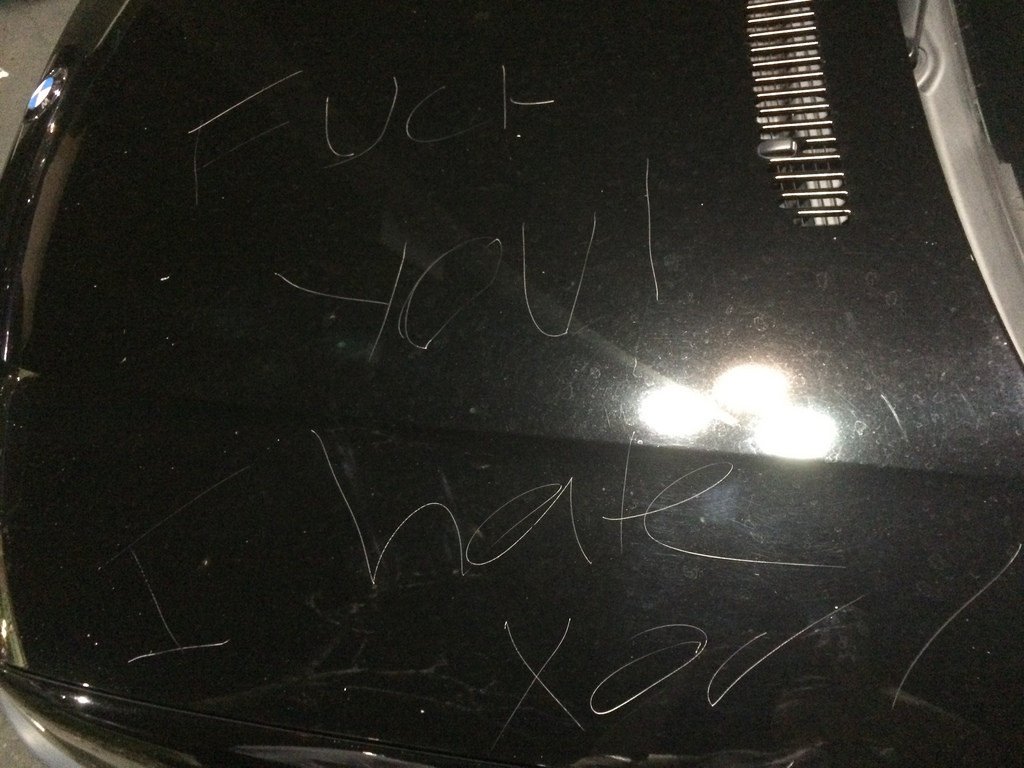 FUCK
YOU!
I hate
you!